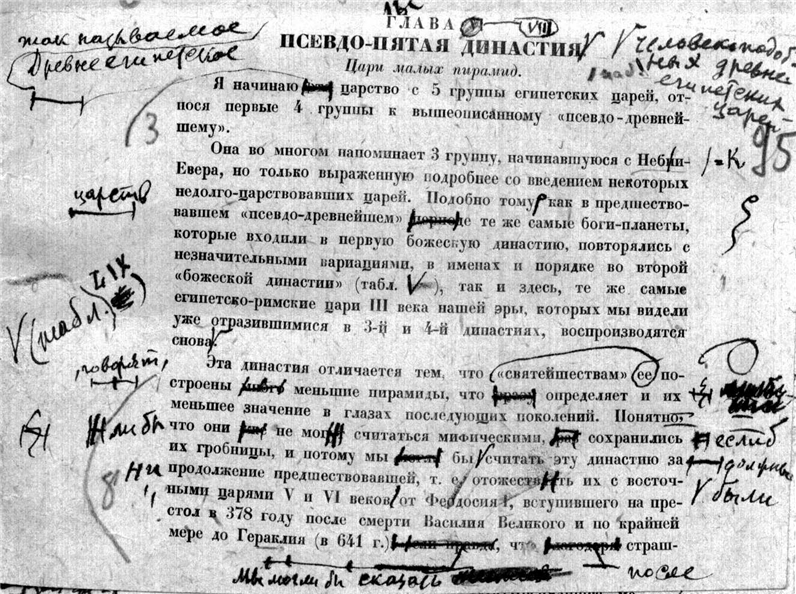 ГЛАВА VIII
ПСЕВДО-ПЯТАЯ ДИНАСТИЯ
V человекоподоб
ных древне
египетских
царей
так называемое
Древнеегипетское
Цари малых пирамид.
Я начинаю царство с 5 группы египетских царей, от-
нося первые 4 группы к вышеописанному «псевдо-древней-
шему».
З
95
Она во многом напоминает 3 группу, начинавшуюся с Небри-
)=К
Евера, но только выраженную подробнее со введением некоторых
недолго-царствовавших царей. Подобно тому как в предшество-
царств
вавшем «псевдо-древнейшем» те же самые боги-планеты,
которые входили в первую божескую династию, повторялись с
незначительными вариациями, в именах и порядке во второй
«божеской династии» (табл. ), так и здесь, те же самые
V (табл. LIX)
египетско-римские цари III века нашей эры, которых мы видели
уже отразившимися в 3-й и 4-й династиях, воспроизводятся
снова.
Эта династия отличается тем, что «святейшествам» ее по-
, говорят,
строены меньшие пирамиды, что определяет и их
меньшее значение в глазах последующих поколений. Понятно,
что они не мог считаться мифическими, сохранились
ли бы
если б
их гробницы, и потому мы бы считать эту династию за
должны
продолжение предшествовавшей, т. е. отожествить их с восточ-
ни
V были
ными царями V и VI веков от Феодосия I, вступившего на пре-
стол в 378 году после смерти Василия Великого и по крайней
мере до Гераклия (в 641 г.) что страш-
Мы могли бы сказать
после